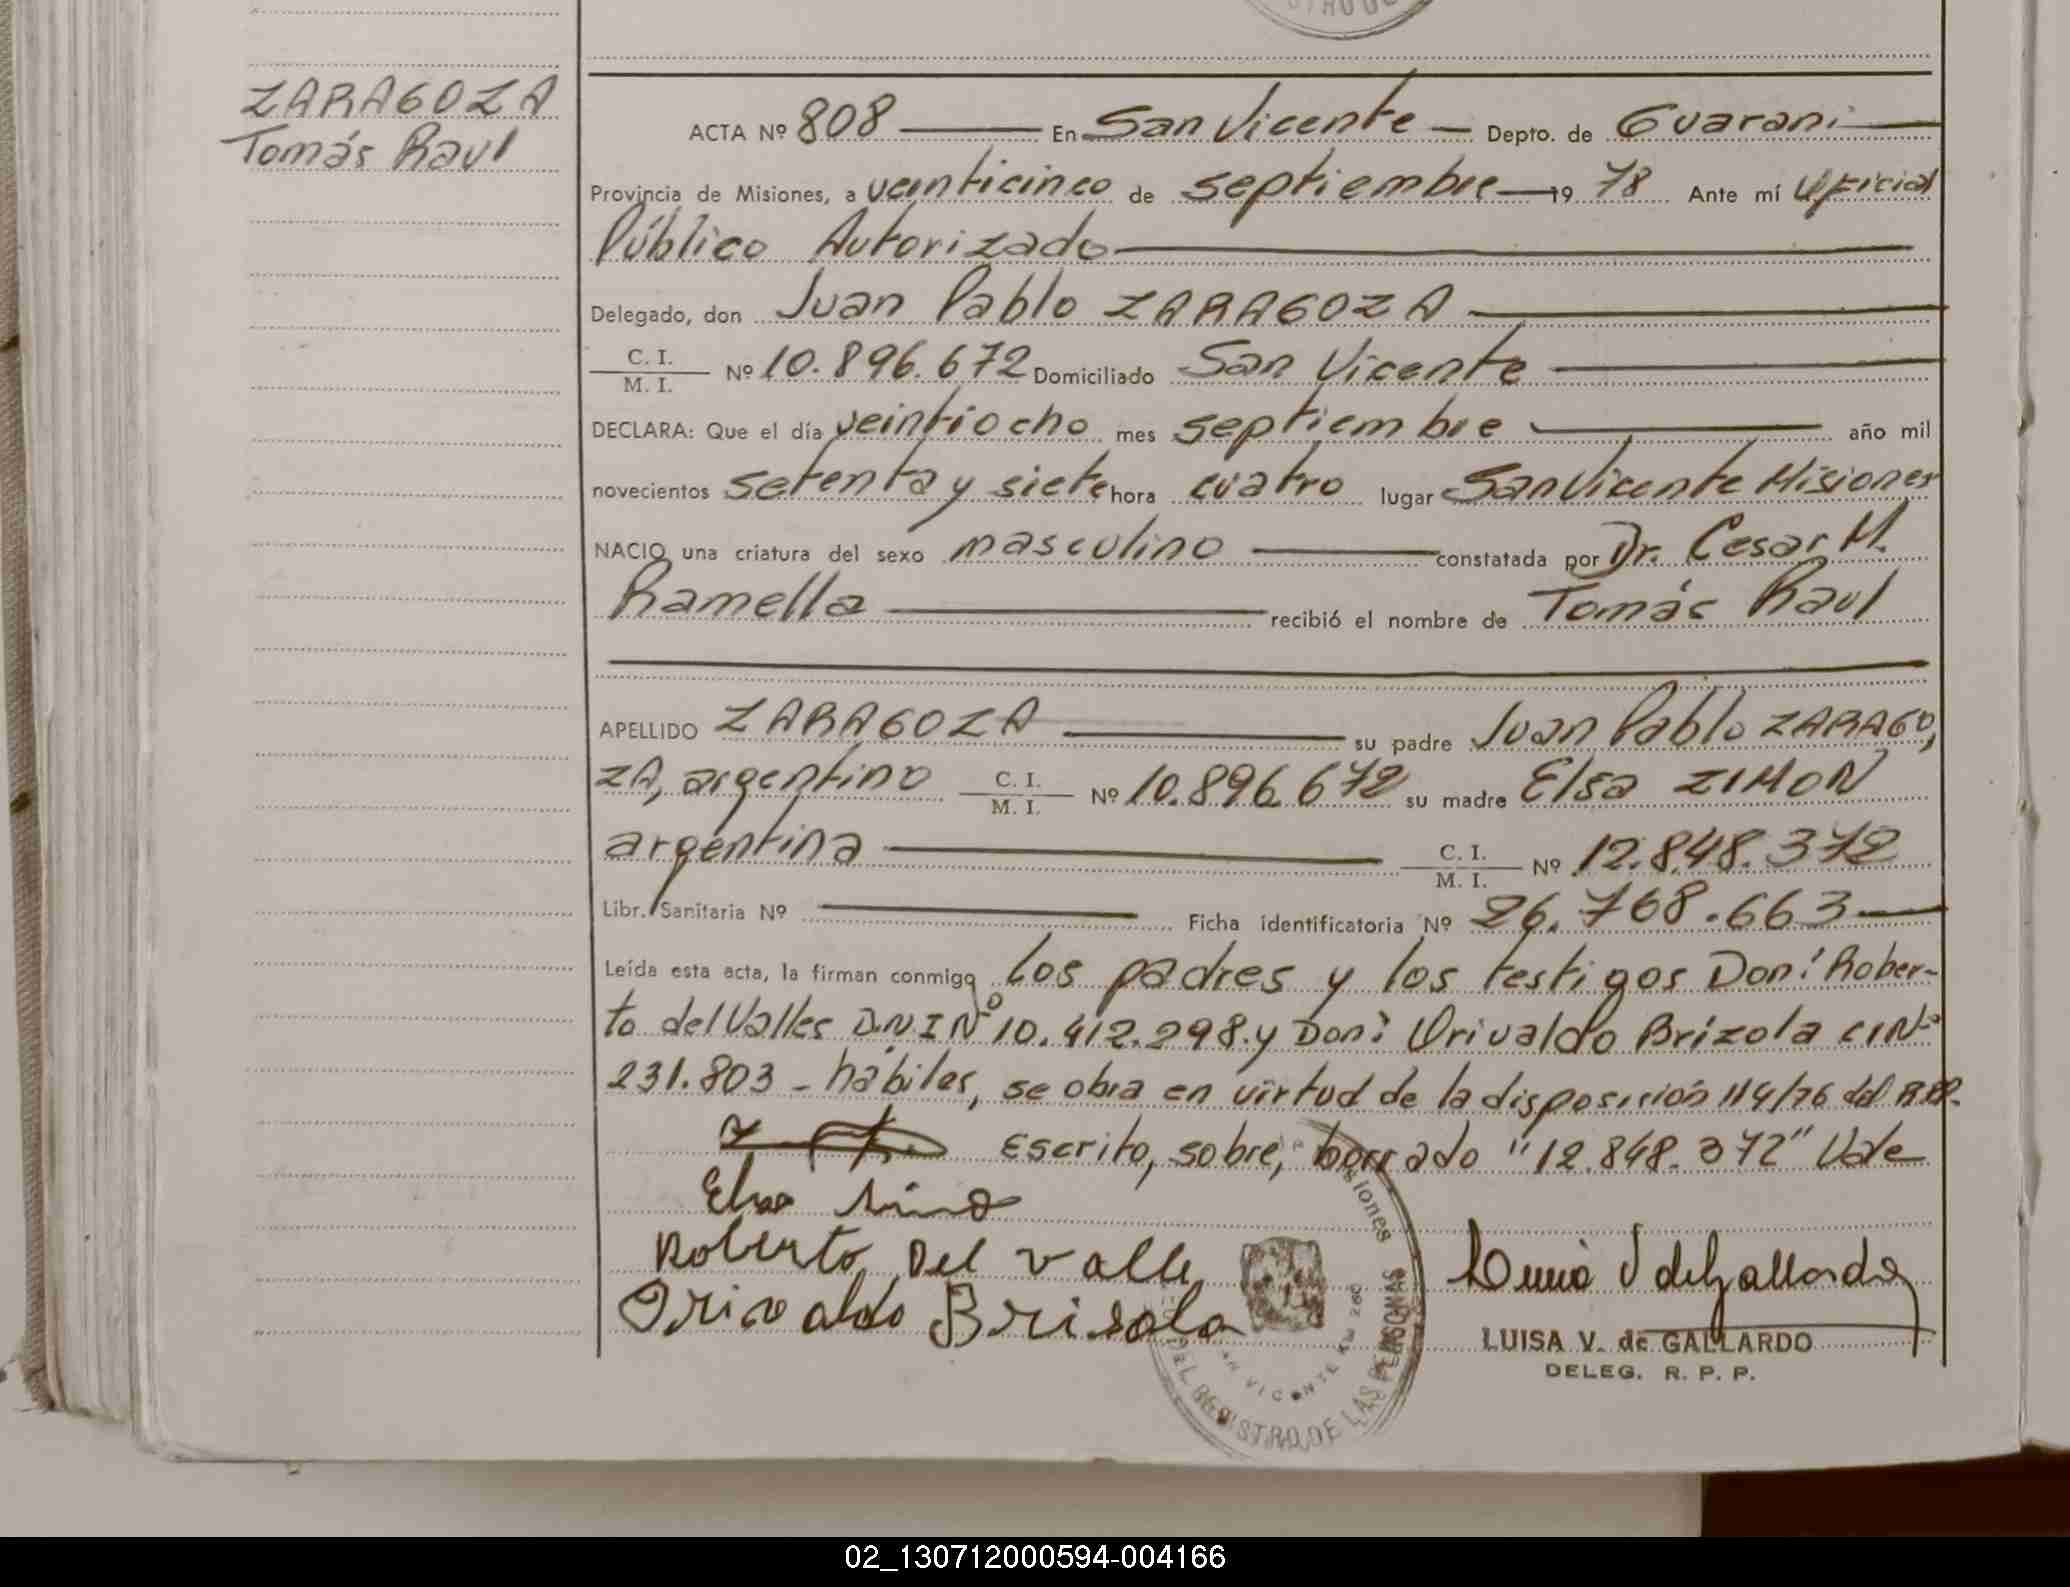 ZARAGOZA
Tomás Raul
ACTA Nº 808 En San Vicente Depto. de Guarani
Provincia de Misiones, a veinticinco de septiembre 19 78 Ante mí Oficial
Público Autorizado
Delegado, don Juan Pablo ZARAGOZA
C. I.
M. I. Nº 10.896.672 Domiciliado San Vicente
DECLARA: Que el día veintiocho mes septiembre año mil
novecientos setenta y siete hora cuatro lugar San Vicente Misiones
NACIO una criatura del sexo masculino constatada por Dr. Cesar M.
Ramella recibió el nombre de Tomás Raul
APELLIDO ZARAGOZA su padre Juan Pablo ZARAGO,
ZA, argentino C. I.
M. I. Nº 10.896.672 su madre Elsa ZIMON
argentina C. I.
M. I. Nº 12.848.372
Libr. Sanitaria Nº Ficha identificatoria Nº 26.768.663
Leída esta acta, la firman conmigo los padres y los testigos Don: Rober-
to del Valles D.N.I Nº 10.412.298 y Don: Orivaldo Brizola CI Nº
231.803 - hábiles, se obra en virtud de la disposición 114/76 del R.P.P.
Escrito, sobre, borrado "12.848.372" Vale
Elsa
Roberto Del Valle
Orivaldo Brisola
LUISA V. de GALLARDO
DELEG. R. P. P.
DEL REGISTRO DE LAS PERSONAS
SAN VICENTE
02_130712000594-004166